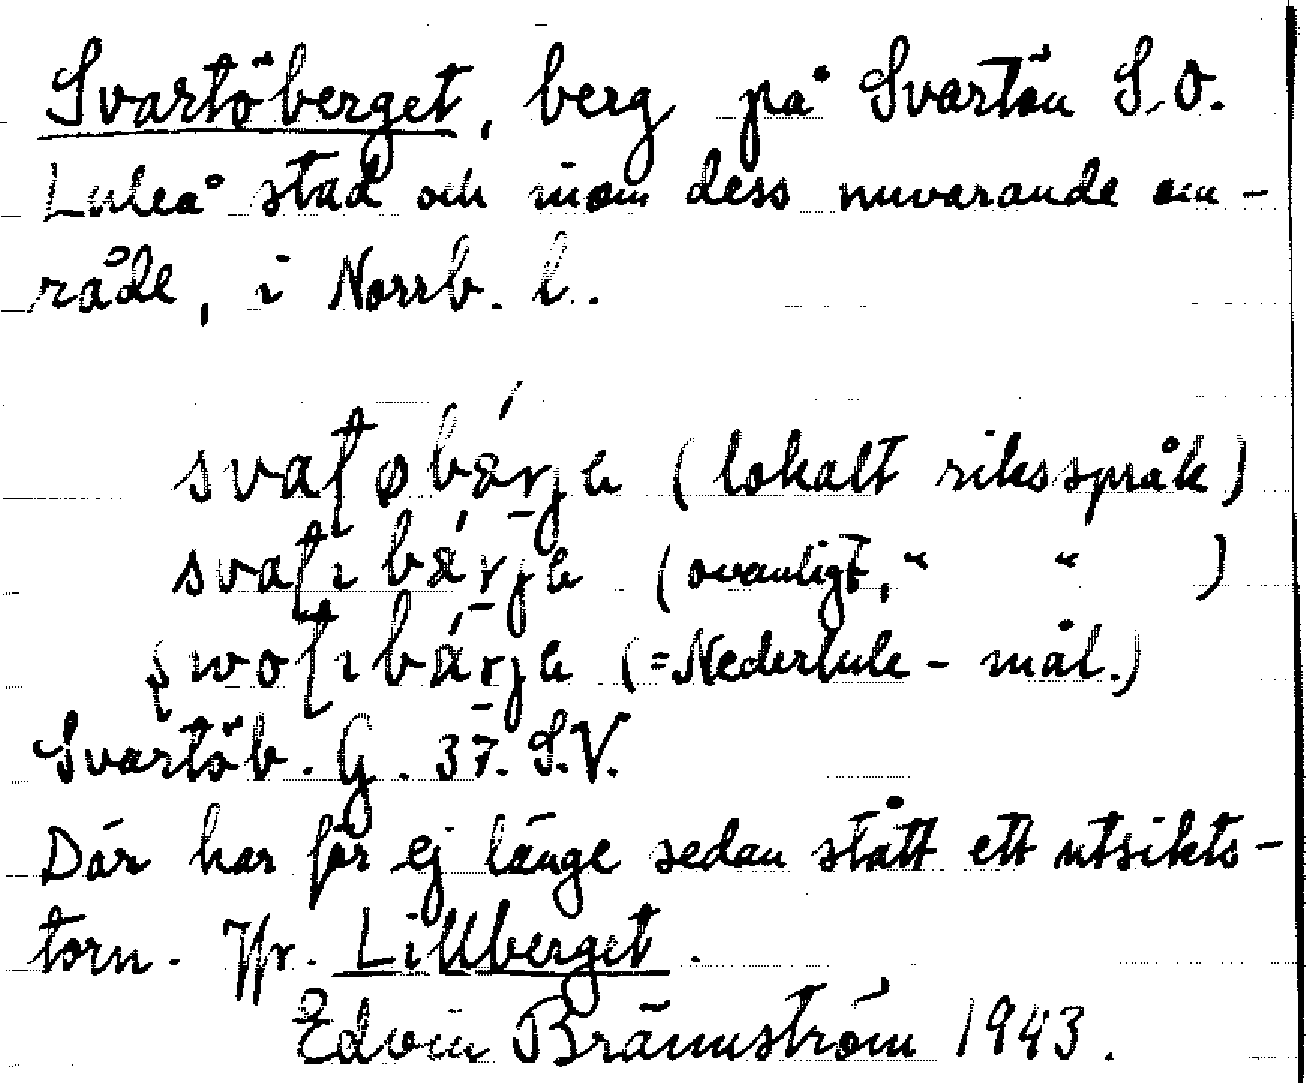 Svartöberget, berg på Svartön S.O.
Luleå stad och inom dess nuvarande om-
råde, i Norrb. l.
(lokalt riksspråk)
(ovanligt, " " )
(=Nederlule-mål.)
Svartöb. G. 37. S.V.
Där har för ej länge sedan stått ett utsikts-
torn. Jfr. Lillberget.
Edvin Brännström 1943.